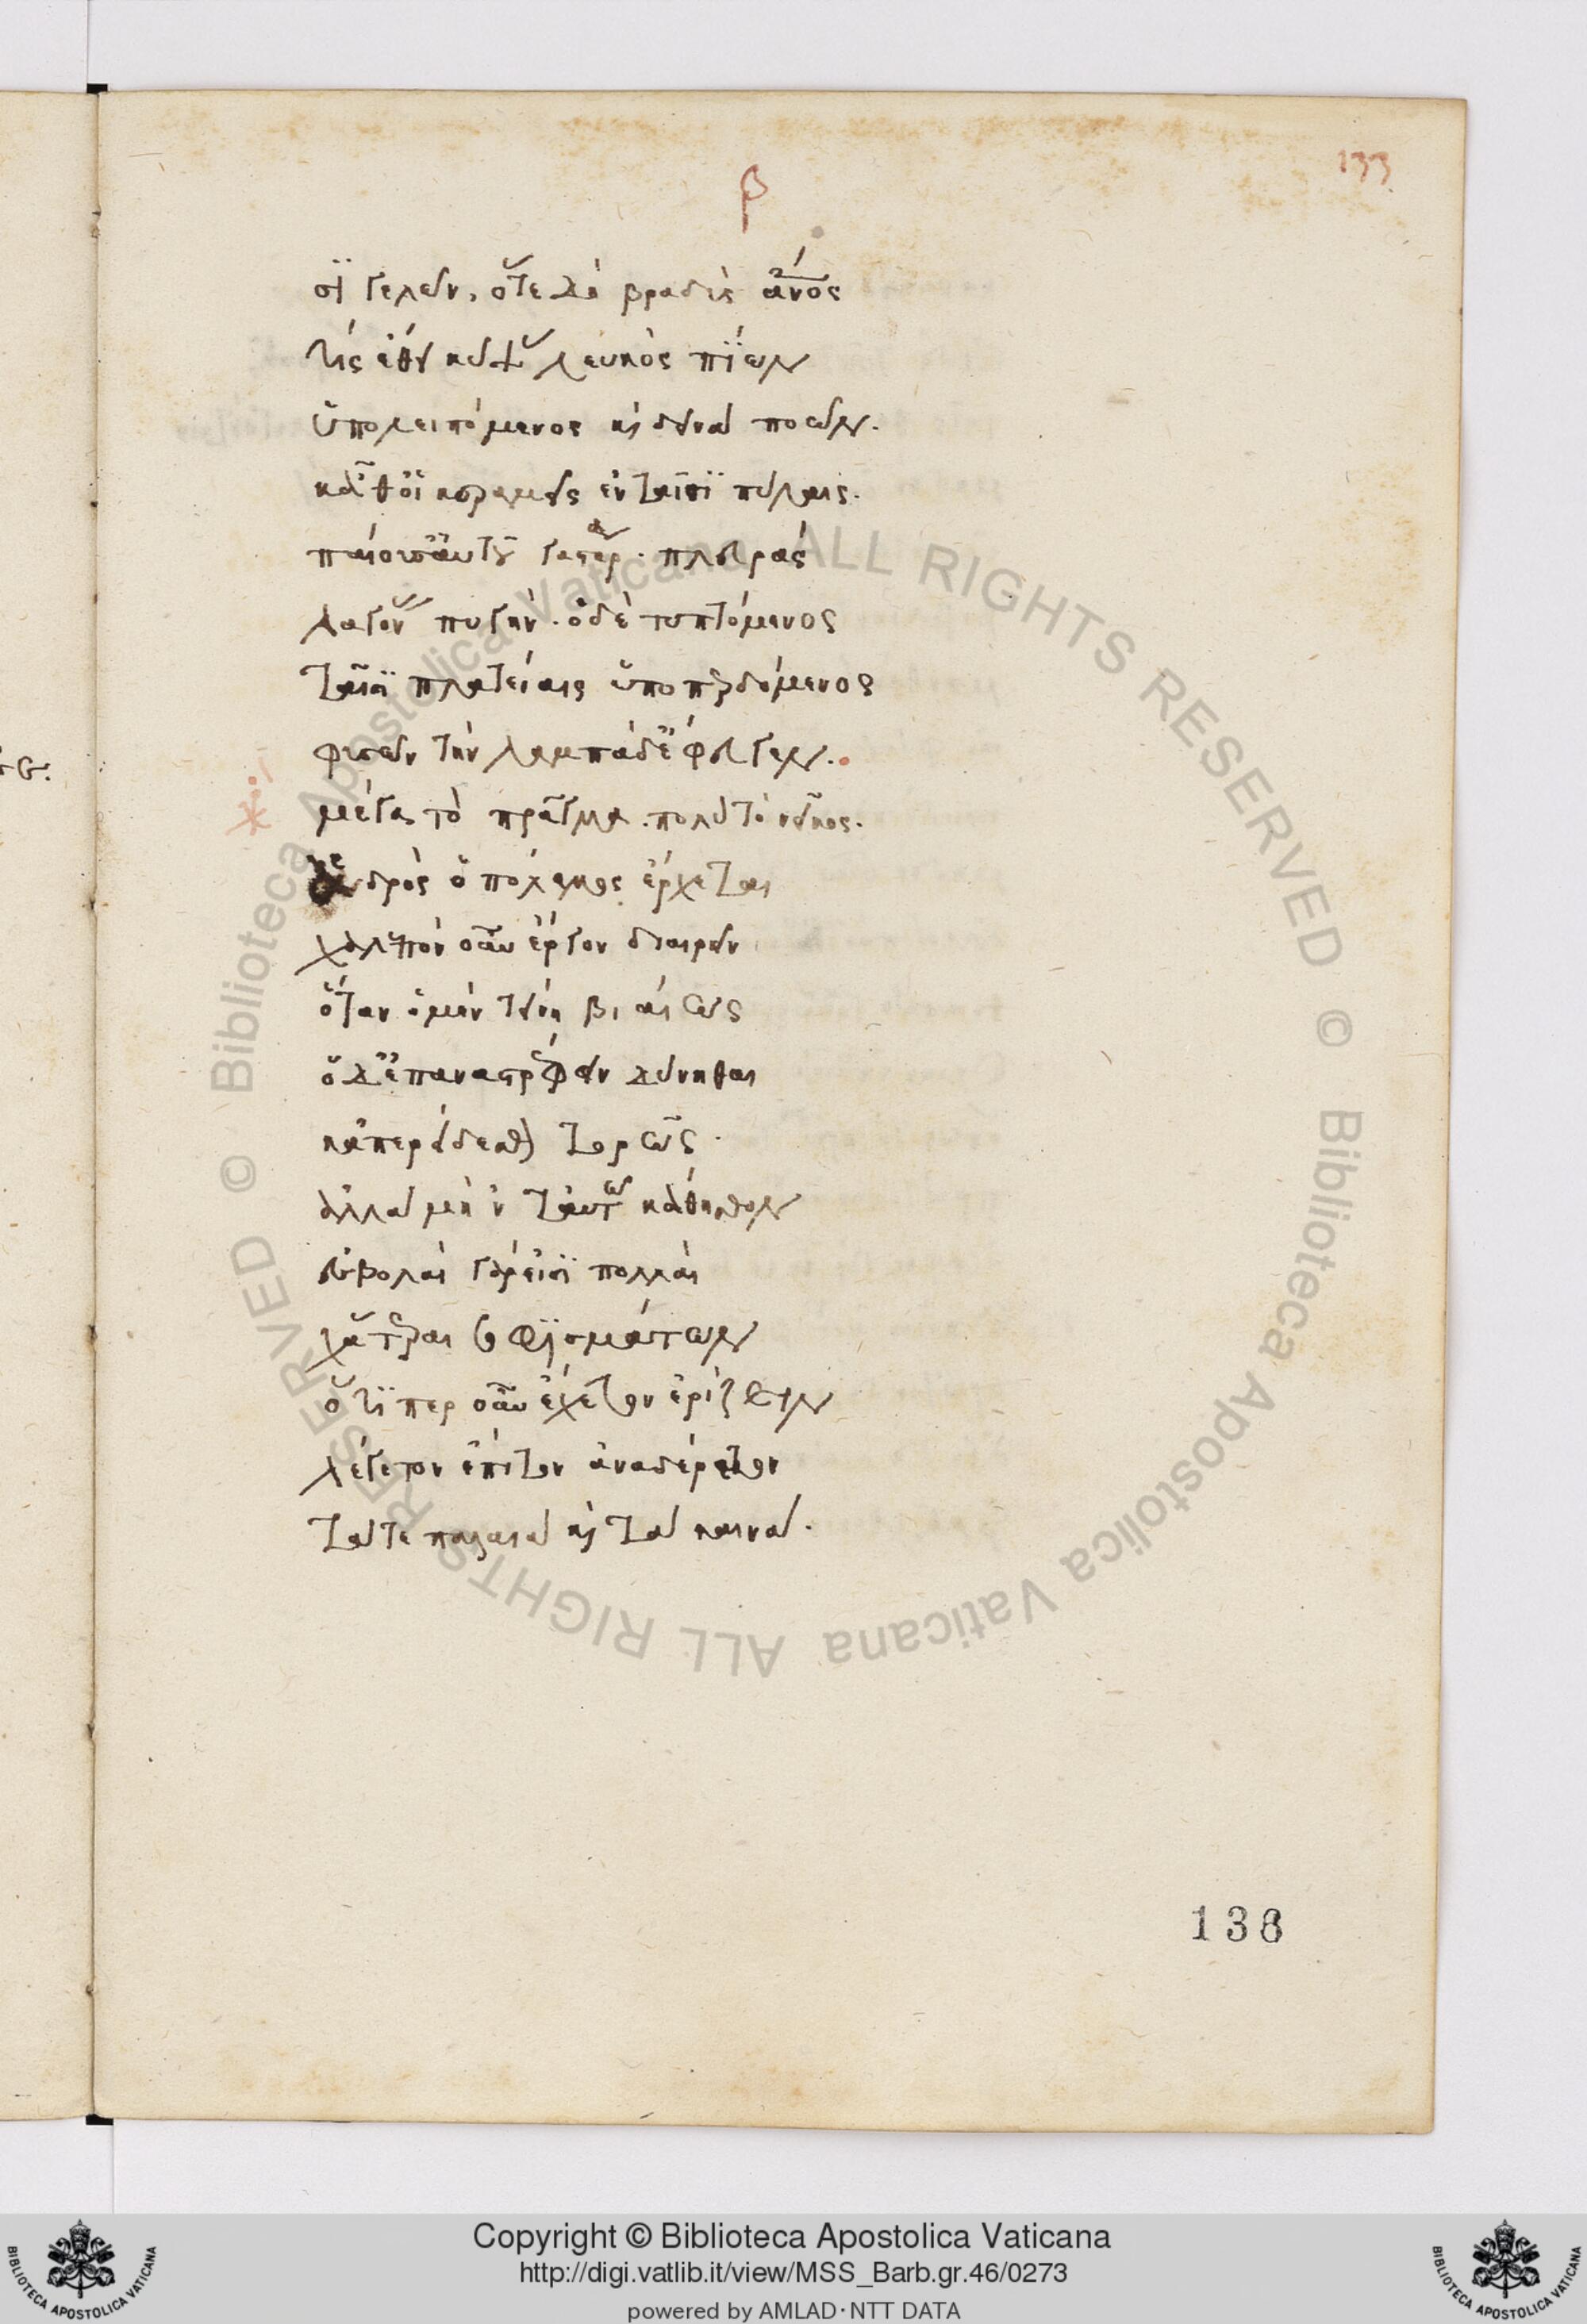 133
β
σι γελῶν, ὅτε δὴ βραδὺς ἄνος
τίς ἔθει κύψ λευκὸς πίων
ὑπολειπόμενος κ δεινὰ ποιῶν.
κᾆθ οἱ κεραμεῖς ἐν ταῖσι πύλαις.
παίουσ αὐτοῦ γαστέρα. πλευρὰς
λαγόν πυγήν. ὁ δὲ τυπτόμενος
ταῖσι πλατείαις ὑποπερδόμενος
φυσῶν τὴν λαμπάδ ἔφευγεν.
μέγα τὸ πρᾶγμα. πολὺ τὸ νεῖκος.
ἁδρὸς ὁ πόλεμος ἔρχεται
χαλεπὸν οὖν ἔργον διαιρεῖν
ὅταν ὁ μὲν τείνῃ βιαίως
ὁ δ ἐπαναστρέφειν δύνηται
κἀπερείδεσθαι τορῶς.
ἀλλὰ μὴ ν ταυτῶ κάθησθον
εἰσβολαὶ γάρ εἰσι πολλαὶ
χἄτεραι σοφισμάτων
ὅτι περ οὖν ἔχετον ἐρίζειν
λέγετον ἔπιτον ἀναδέρετον
τά τε παλαιὰ κ τὰ καινά.
138
Copyright © Biblioteca Apostolica Vaticana
http://digi.vatlib.it/view/MSS_Barb.gr.46/0273
powered by AMLAD·NTT DATA
© Biblioteca Apostolica Vaticana ALL RIGHTS RESERVED © Biblioteca Apostolica Vaticana ALL RIGHTS RESERVED
BIBLIOTECA APOSTOLICA VATICANA
BIBLIOTECA APOSTOLICA VATICANA